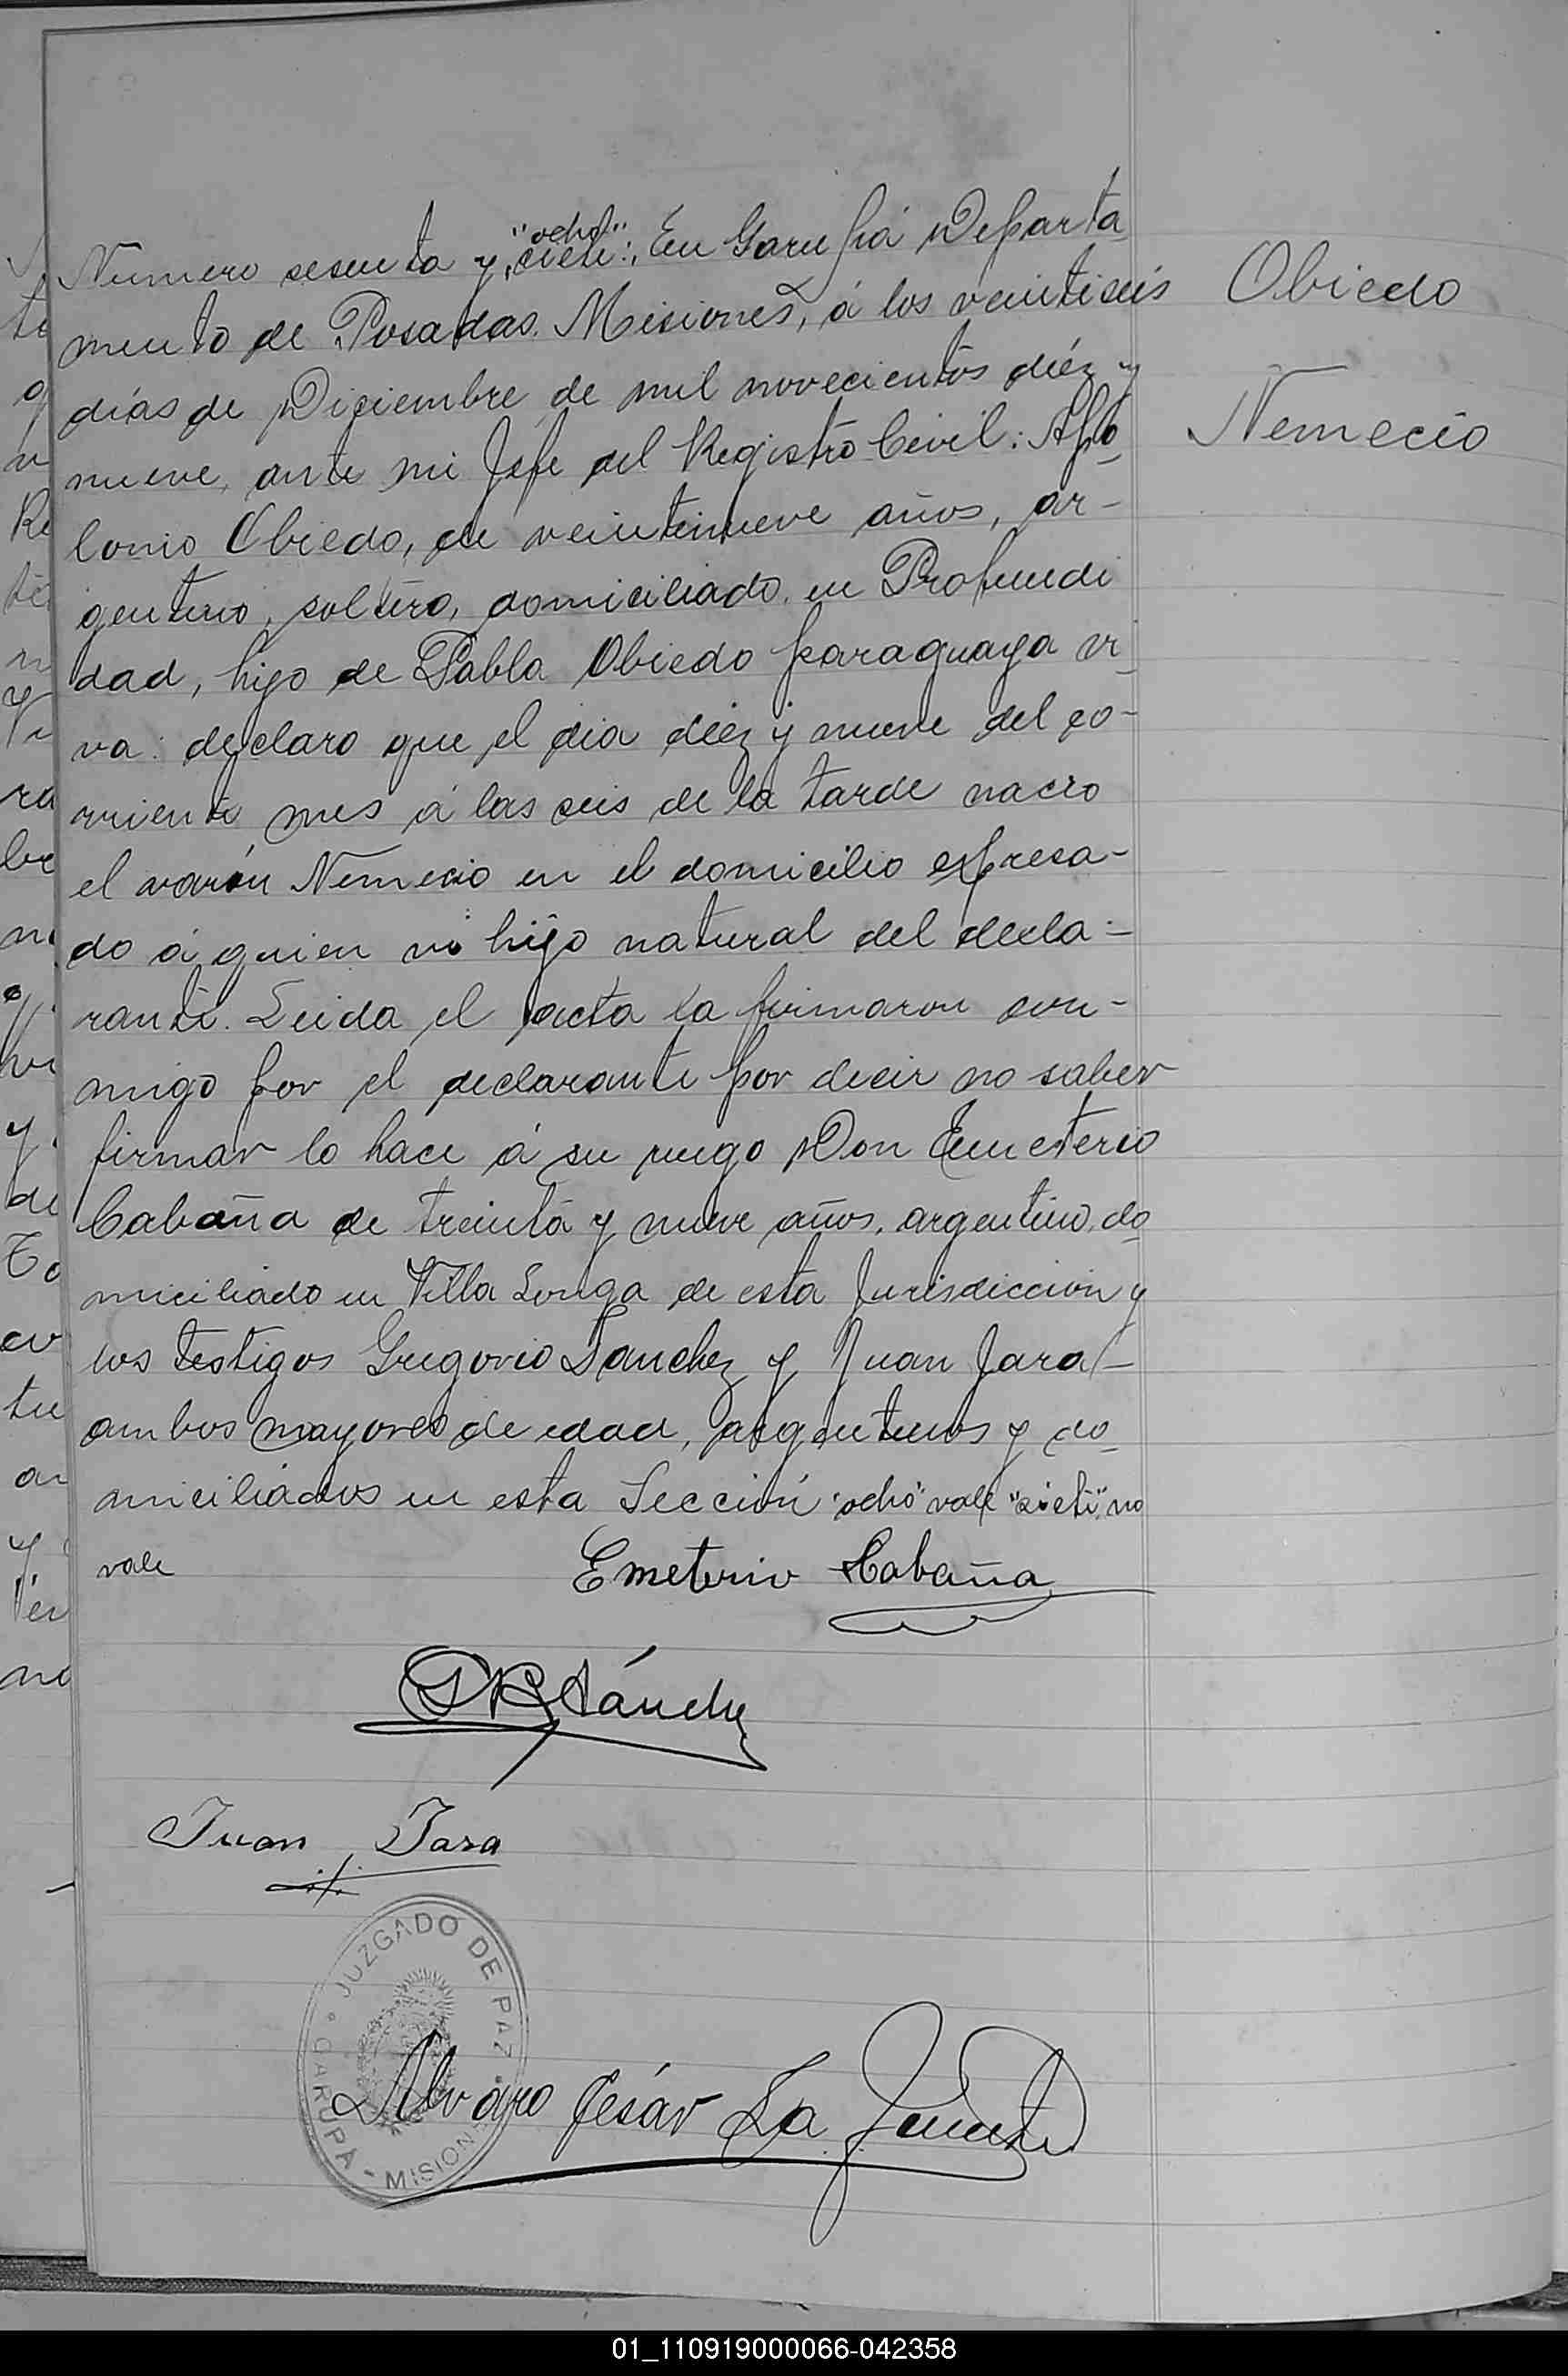 "ocho"
Numero sesenta y "siete": En Garupá Departa-
mento de Posadas. Misiones, á los veintiseis
días de Diciembre de mil novecientos diéz y
nueve, ante mi Jefe del Registro Civil: Apo-
lonio Obiedo, de veintinueve años, ar-
gentino, soltero, domiciliado en Profundi
dad, hijo de Pabla Obiedo paraguaya vi-
va: declaro que el dia diéz y nueve del co-
rriente mes á las seis de la tarde nacio
el varón Nemecio en el domicilio espresa-
do á quien vi hijo natural del decla-
rante. Leida el acta la firmaron con-
migo por el declarante por decir no saber
firmar lo hace á su ruego Don Emeterio
Cabaña de treinta y nueve años, argentino, do
miciliado en Villa Longa de esta Jurisdiccion y
los testigos Gregorio Sanchez y Juan Jara-
ambos mayores de edad, argentinos y do-
miciliados en esta Sección "ocho" vale "siete" no
vale
Emeterio Cabaña
Sánchez
Juan Jara
JUZGADO DE PAZ
GARUPÁ - MISIONES
Alvaro César La Fuente
Obiedo
Nemecio
01_110919000066-042358